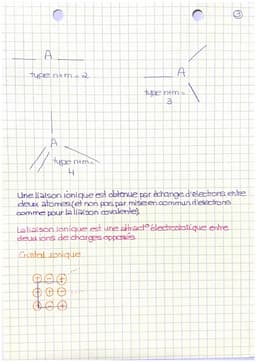 ③
A
type n+m = 2
A
type n+m =
3
A
type n+m =
4
Une liaison ionique est obtenue par échange d'électrons entre
deux atomes (et non pas par mise en commun d'électrons
comme pour la liaison covalente).
La liaison ionique est une attract° électrostatique entre
deux ions de charges opposées.
Cristal ionique
+ - +
- + -
+ - +